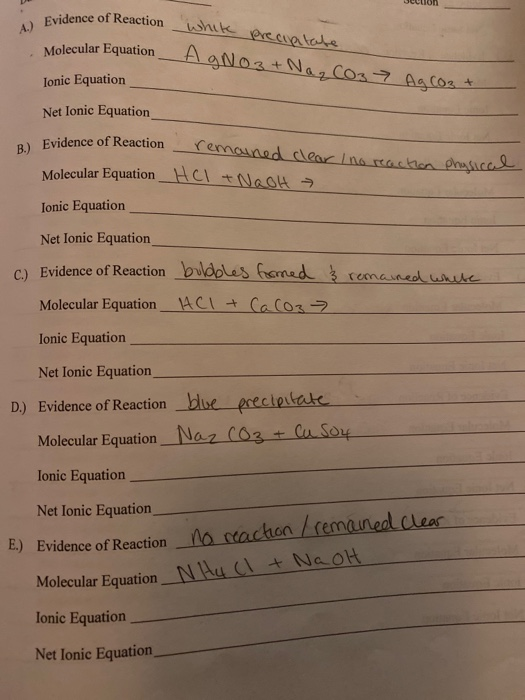 Section
A.) Evidence of Reaction white precipitate
Molecular Equation AgNO3 + Na2CO3 → AgCO3 +
Ionic Equation
Net Ionic Equation
B.) Evidence of Reaction remained clear / no reaction physical
Molecular Equation HCl + NaOH →
Ionic Equation
Net Ionic Equation
C.) Evidence of Reaction bubbles formed & remained white
Molecular Equation HCl + CaCO3 →
Ionic Equation
Net Ionic Equation
D.) Evidence of Reaction blue precipitate
Molecular Equation Na2CO3 + CuSO4
Ionic Equation
Net Ionic Equation
E.) Evidence of Reaction no reaction / remained clear
Molecular Equation NH4Cl + NaOH
Ionic Equation
Net Ionic Equation